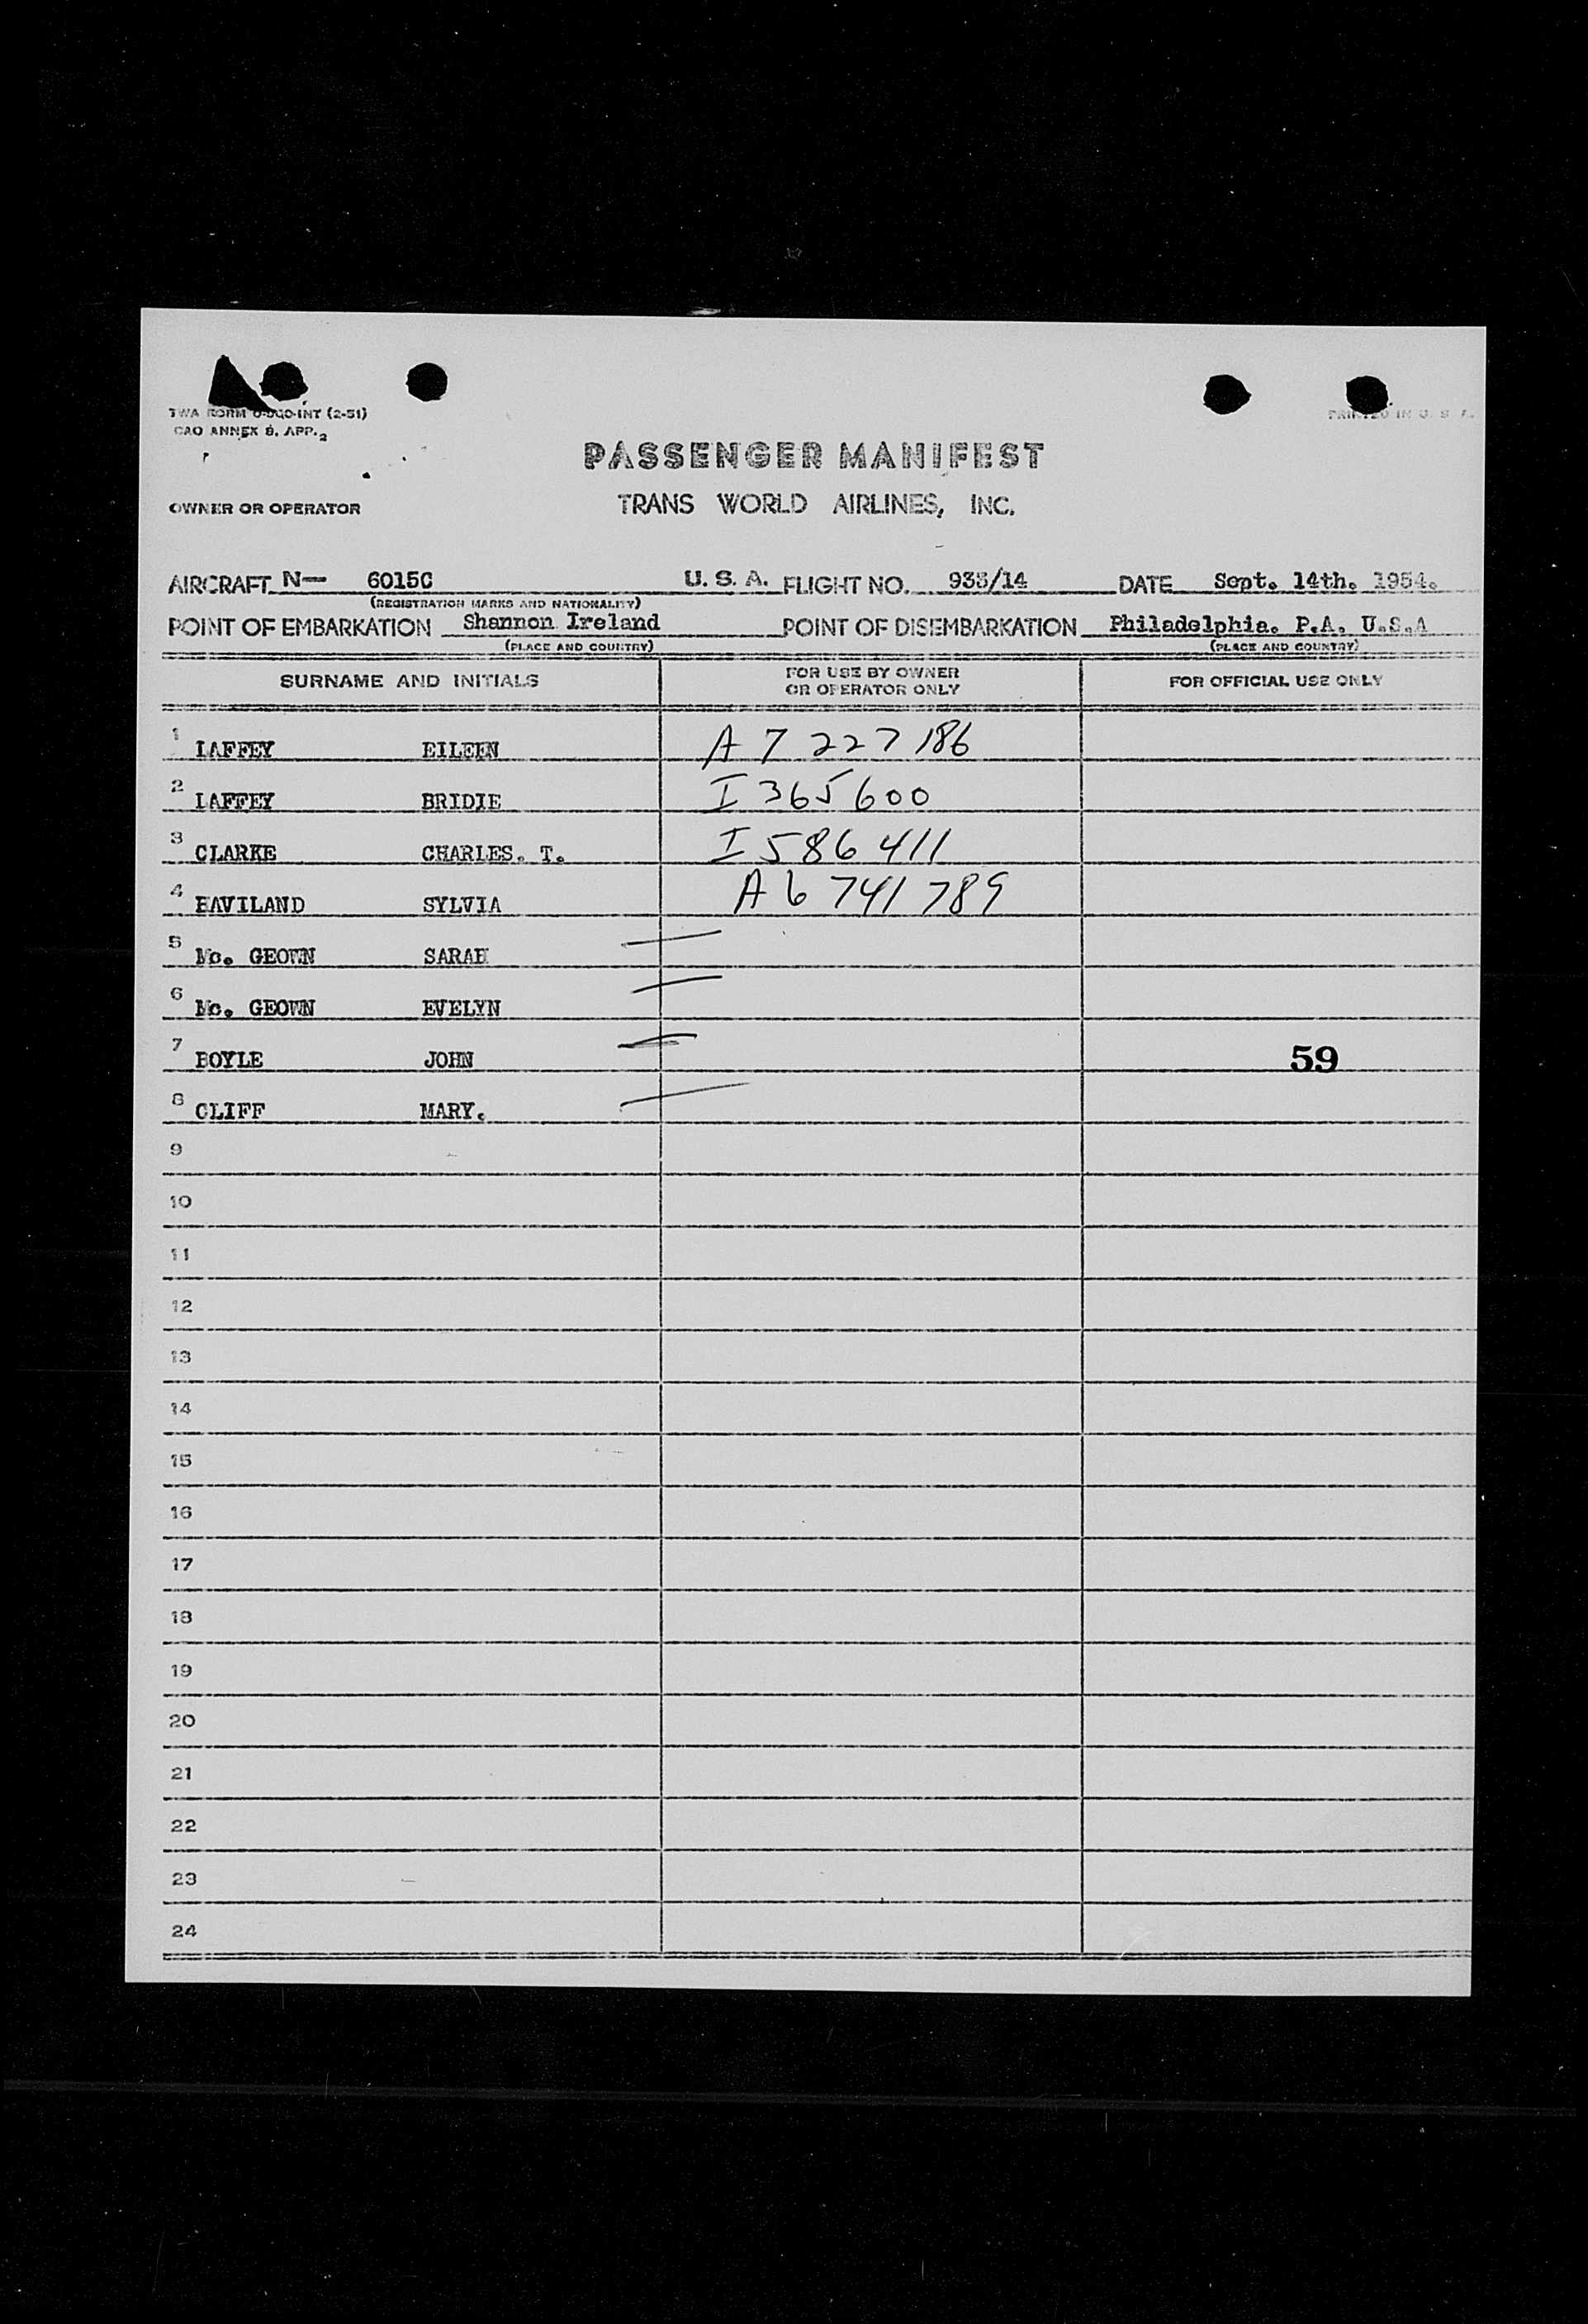 TWA FORM
CAO ANNEX 8, APP. 2
PRINTED IN U. S. A.
PASSENGER MANIFEST
OWNER OR OPERATOR TRANS WORLD AIRLINES, INC.
AIRCRAFT N— 6015C U. S. A. FLIGHT NO. DATE Sept. 14th. 1954.
(REGISTRATION MARKS AND NATIONALITY)
POINT OF EMBARKATION Shannon Ireland POINT OF DISEMBARKATION Philadelphia. P.A. U.S.A
(PLACE AND COUNTRY) (PLACE AND COUNTRY)
SURNAME AND INITIALS FOR USE BY OWNER OR OPERATOR ONLY FOR OFFICIAL USE ONLY
1 LAFFEY EILEEN A 7 227 186
2 LAFFEY BRIDIE I 365 600
3 CLARKE CHARLES. T. I 586 411
4 HAVILAND SYLVIA A 6 741 789
5 Mc. GEOWN SARAH
6 Mc. GEOWN EVELYN
7 BOYLE JOHN 59
8 CLIFF MARY.
9
10
11
12
13
14
15
16
17
18
19
20
21
22
23
24